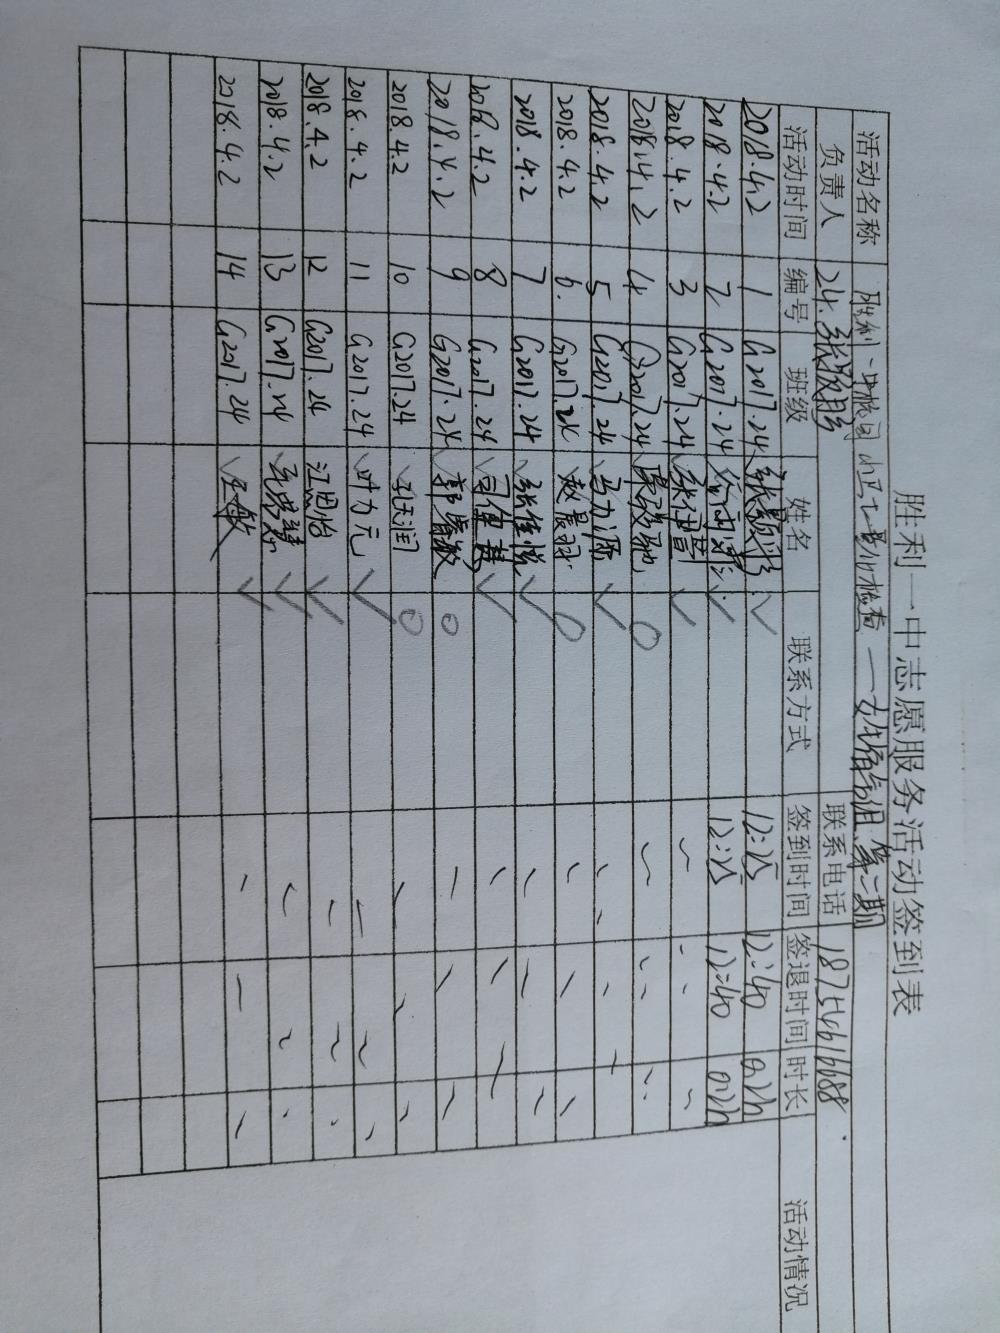 胜利一中志愿服务活动签到表
活动名称 胜利一中校园 检查 第二期
负责人 24.张颢彤 联系电话 18754616688
活动时间 编号 班级 姓名 联系方式 签到时间 签退时间 时长 活动情况
2018.4.2 1 G2017.24 张颢彤 √ 12:25 12:40 0.2h
2018.4.2 2 G2017.24 √ 12:25 12:40 0.2h
2018.4.2 3 G2017.24 √
2018.4.2 4 G2017.24 ○
2018.4.2 5 G2017.24 马力源 √
2018.4.2 6. G2017.24 赵晨羽 ○
2018.4.2 7 G2017.24 张佳悦 √
2018.4.2 8 G2017.24 √
2018.4.2 9 G2017.24 郭睿敏 ○
2018.4.2 10 G2017.24 孔天润 ○
2018.4.2 11 G2017.24 叶力元 √
2018.4.2 12 G2017.24 江思怡 √
2018.4.2 13 G2017.24 √
2018.4.2 14 G2017.24 √